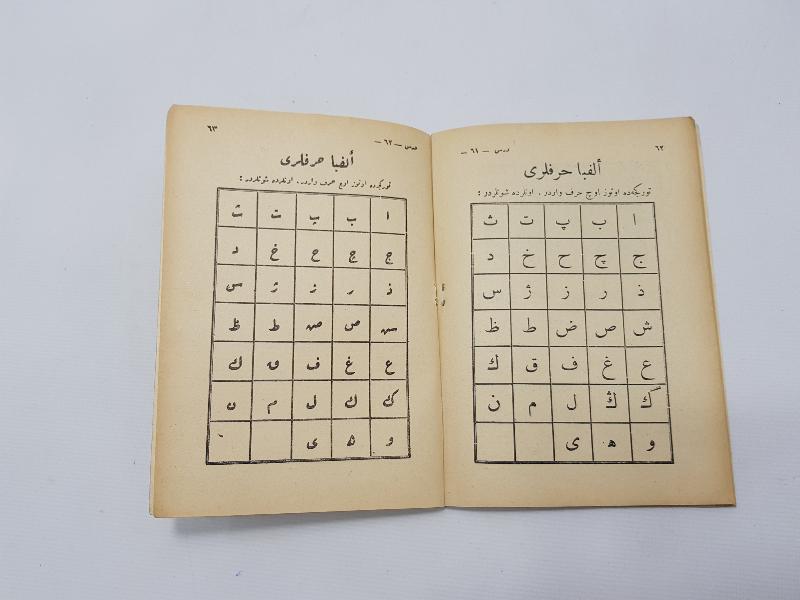 ٦٢
درس — ٦١ —
ألفبا حرفلرى
توركجه‌ده اوتوز اوچ حرف واردر . اونلرده شونلردر :
ا ب پ ت ث
ج چ ح خ د
ذ ر ز ژ س
ش ص ض ط ظ
ع غ ف ق ك
گ ڭ ل م ن
و ه ى
درس — ٦٢ —
٦٣
ألفبا حرفلرى
توركجه‌ده اوتوز اوچ حرف واردر . اونلرده شونلردر :
ا ب پ ت ث
ج چ ح خ د
ذ ر ز ژ س
ش ص ض ط ظ
ع غ ف ق ك
گ ڭ ل م ن
و ه ى